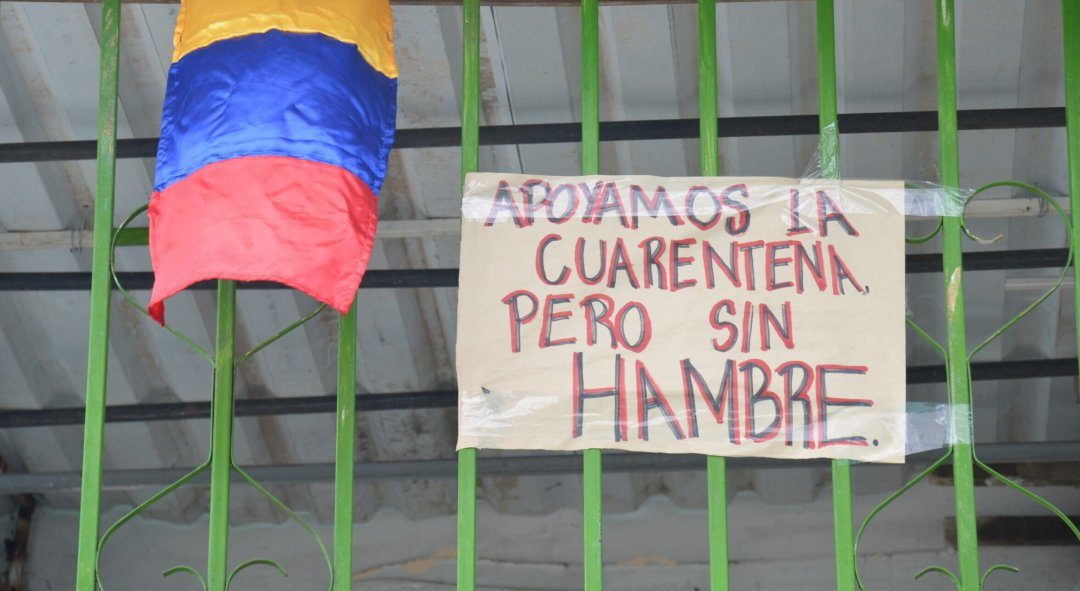 APOYAMOS LA
CUARENTENA,
PERO SIN
HAMBRE.